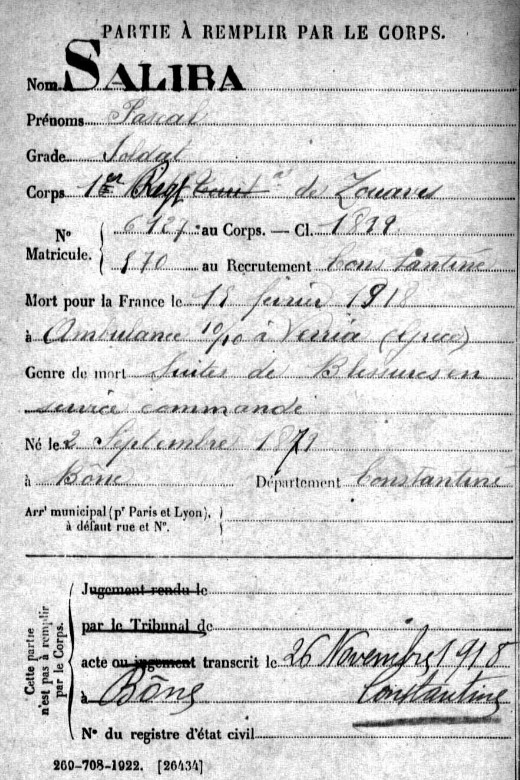 PARTIE À REMPLIR PAR LE CORPS.
Nom SALIBA
Prénoms Pascal
Grade Soldat
Corps 1er Regt de Zouaves
N° Matricule. 6427 au Corps. — Cl. 1899
870 au Recrutement Constantine
Mort pour la France le 15 février 1918
à Ambulance 10/10 à Verria (Grèce)
Genre de mort Suites de Blessures en
service commandé
Né le 2 Septembre 1879
à Bône Département Constantine
Arrt municipal (pr Paris et Lyon),
à défaut rue et N°.
Cette partie
n'est pas à remplir
par le Corps.
Jugement rendu le
par le Tribunal de
acte ou jugement transcrit le 26 Novembre 1918
à Bône Constantine
N° du registre d'état civil
269-708-1922. [26434]